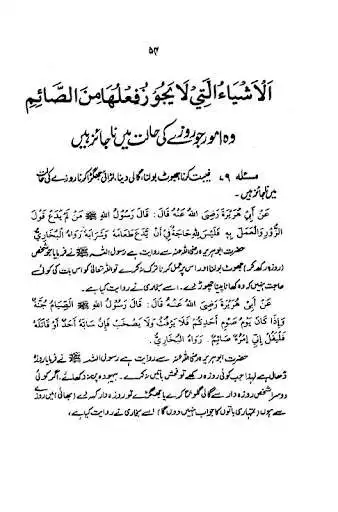 ۵۴
اَلْاَشْیَاءُ الَّتِیْ لَا یَجُوْزُ فِعْلُهَا مِنَ الصَّائِمِ
وہ امور جو روزے کی حالت میں ناجائز ہیں
مسئلہ ۷۹ غیبت کرنا، جھوٹ بولنا، گالی دینا، لڑائی جھگڑا کرنا روزے کی حالت
میں ناجائز ہیں۔
عَنْ أَبِيْ هُرَيْرَةَ رَضِيَ اللهُ عَنْهُ قَالَ: قَالَ رَسُوْلُ اللهِ ﷺ مَنْ لَمْ يَدَعْ قَوْلَ
الزُّوْرِ وَالْعَمَلَ بِهِ فَلَيْسَ لِلّٰهِ حَاجَةٌ فِيْ أَنْ يَّدَعَ طَعَامَهُ وَشَرَابَهُ رَوَاهُ الْبُخَارِيُّ
حضرت ابو ہریرہ رضی اللہ عنہ سے روایت ہے رسول اللہ ﷺ نے فرمایا جو شخص
(روزہ رکھ کر) جھوٹ بولنا اور اس پر عمل کرنا ترک نہ کرے تو اللہ تعالیٰ کو اس بات کی کوئی
حاجت نہیں کہ وہ کھانا پینا چھوڑ دے۔ اسے بخاری نے روایت کیا ہے۔
عَنْ أَبِيْ هُرَيْرَةَ رَضِيَ اللهُ عَنْهُ قَالَ: قَالَ رَسُوْلُ اللهِ ﷺ الصِّيَامُ جُنَّةٌ
وَإِذَا كَانَ يَوْمُ صَوْمِ أَحَدِكُمْ فَلَا يَرْفُثْ وَلَا يَصْخَبْ فَإِنْ سَابَّهُ أَحَدٌ أَوْ قَاتَلَهُ
فَلْيَقُلْ إِنِّيْ امْرُؤٌ صَائِمٌ. رَوَاهُ الْبُخَارِيُّ.
حضرت ابو ہریرہ رضی اللہ عنہ سے روایت ہے رسول اللہ ﷺ نے فرمایا روزہ
ڈھال ہے لہٰذا جب کوئی روزہ رکھے تو فحش باتیں نہ کرے۔ بیہودہ پن نہ دکھائے، اگر کوئی
دوسرا شخص روزہ دار سے گالی گلوچ کرے یا جھگڑے تو روزہ دار کہہ دے (بھائی) میں روزے
سے ہوں (تمہاری باتوں کا جواب نہیں دوں گا) اسے بخاری نے روایت کیا ہے۔